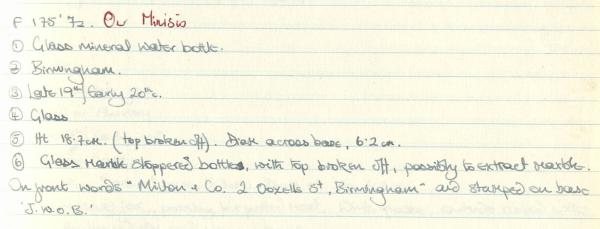 F 175'72. On Minisis
① Glass mineral water bottle.
② Birmingham.
③ Late 19th/Early 20thc.
④ Glass
⑤ Ht 18.7cm. (top broken off). Diam across base, 6.2cm.
⑥ Glass Marble stoppered bottle, with top broken off, possibly to extract marble.
On front words "Milton & Co. 2 Coxells St, Birmingham" and stamped on base
'J.W.O.B.'